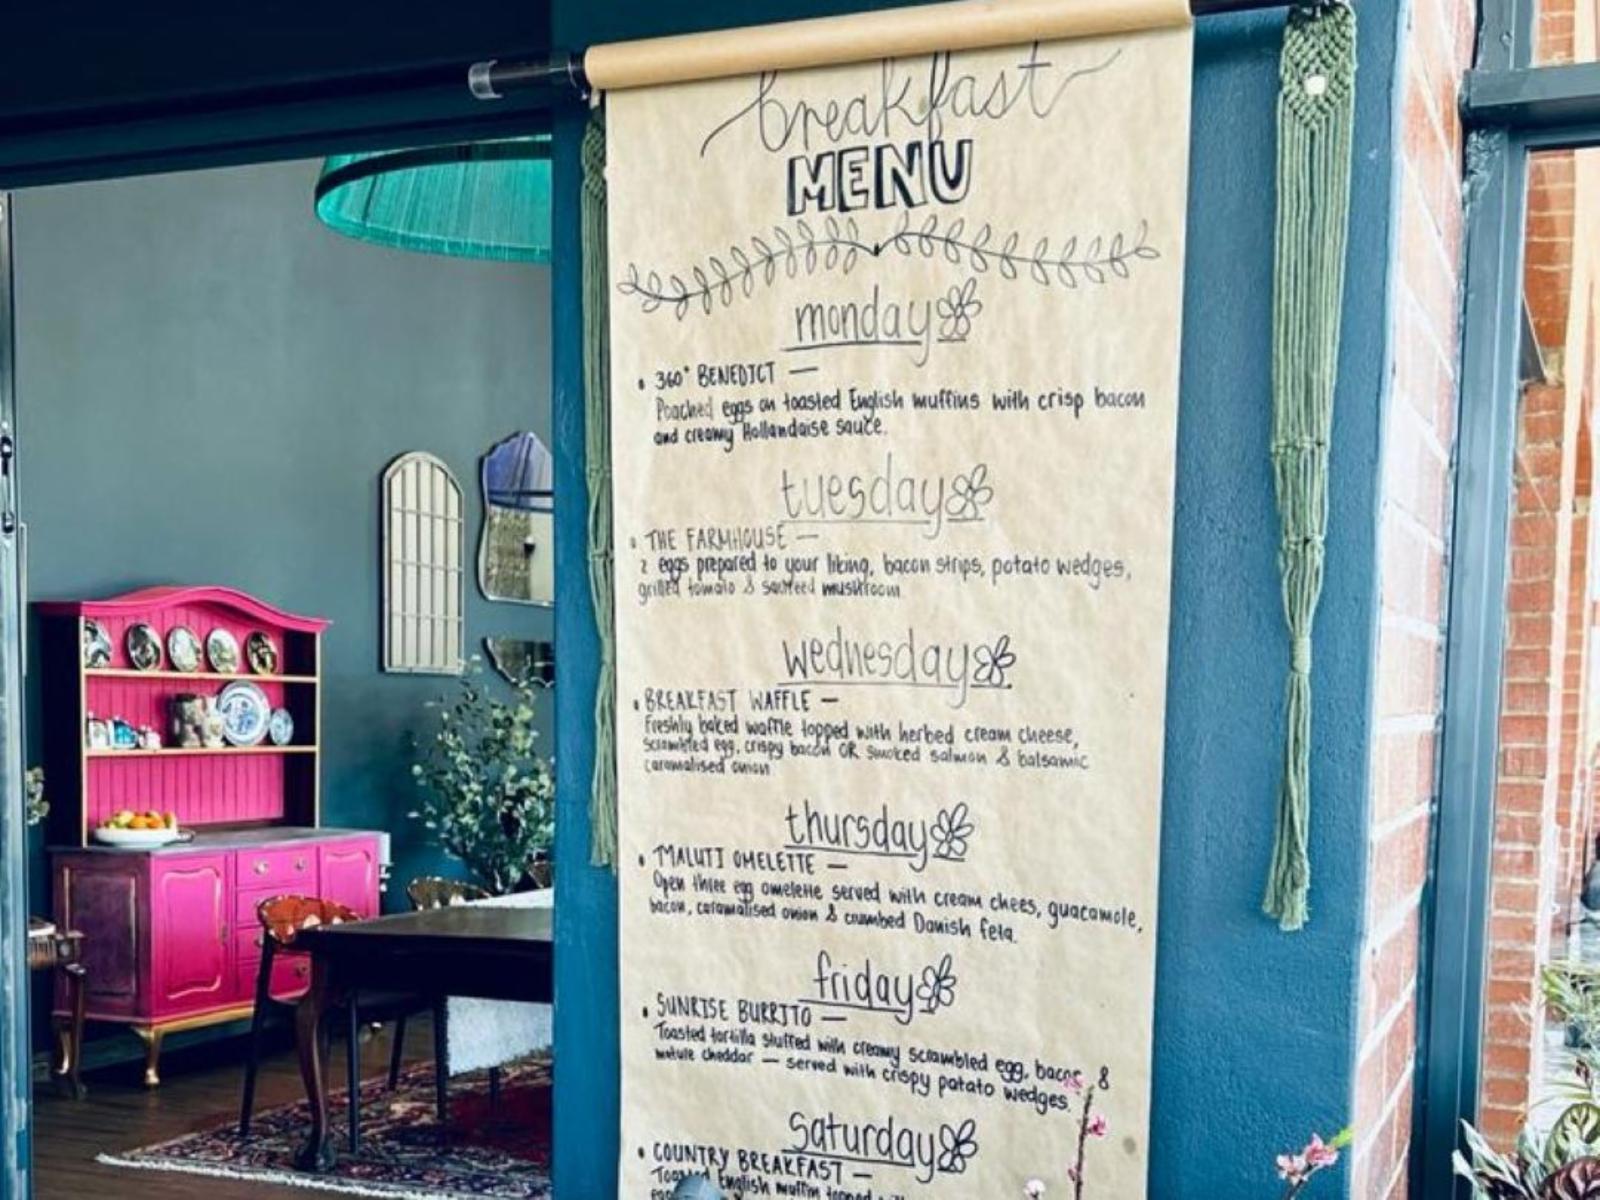 breakfast
MENU
monday
• 360° BENEDICT —
Poached eggs on toasted English muffins with crisp bacon
and creamy Hollandaise sauce.
tuesday
• THE FARMHOUSE —
2 eggs prepared to your liking, bacon strips, potato wedges,
grilled tomato & sauteed mushroom
wednesday
• BREAKFAST WAFFLE —
Freshly baked waffle topped with herbed cream cheese,
scrambled egg, crispy bacon OR smoked salmon & balsamic
caramalised onion
thursday
• MALUTI OMELETTE —
Open three egg omelette served with cream chees, guacamole,
bacon, caramalised onion & crumbed Danish feta.
friday
• SUNRISE BURRITO —
Toasted tortilla stuffed with creamy scrambled egg, bacon &
mature cheddar — served with crispy potato wedges.
saturday
• COUNTRY BREAKFAST —
Toasted English muffin topped